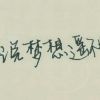 说梦想遥不